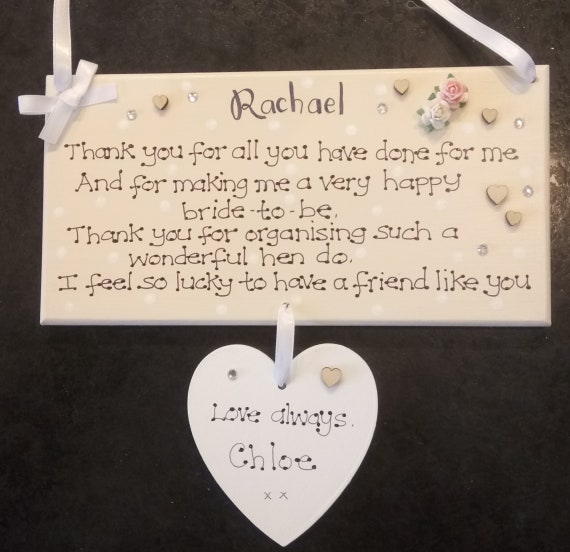 Rachael
Thank you for all you have done for me
And for making me a very happy
bride-to-be.
Thank you for organising such a
wonderful hen do.
I feel so lucky to have a friend like you
Love always,
Chloe
x x